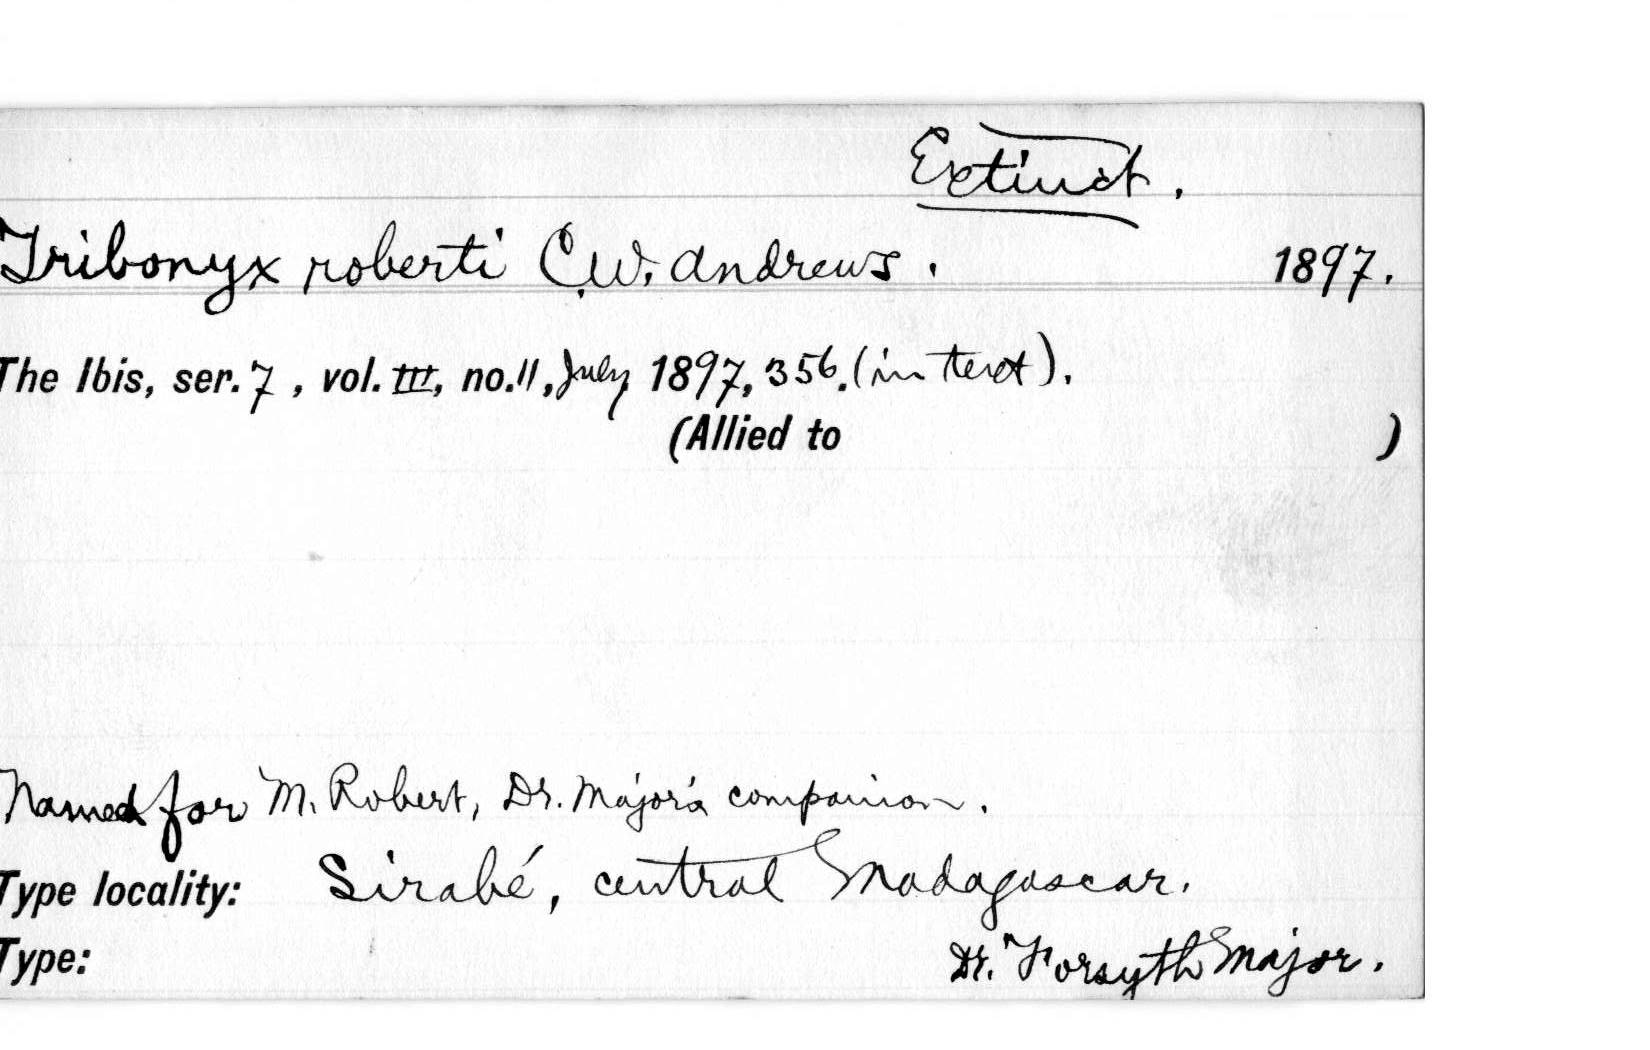 Extinct.
Tribonyx roberti C.W. Andrews. 1897.
The Ibis, ser. 7, vol. III, no. 11, July 1897, 356. (in text).
(Allied to )
Named for M. Robert, Dr. Major's companion.
Type locality: Sirabé, central Madagascar.
Type: Dr. Forsyth Major.